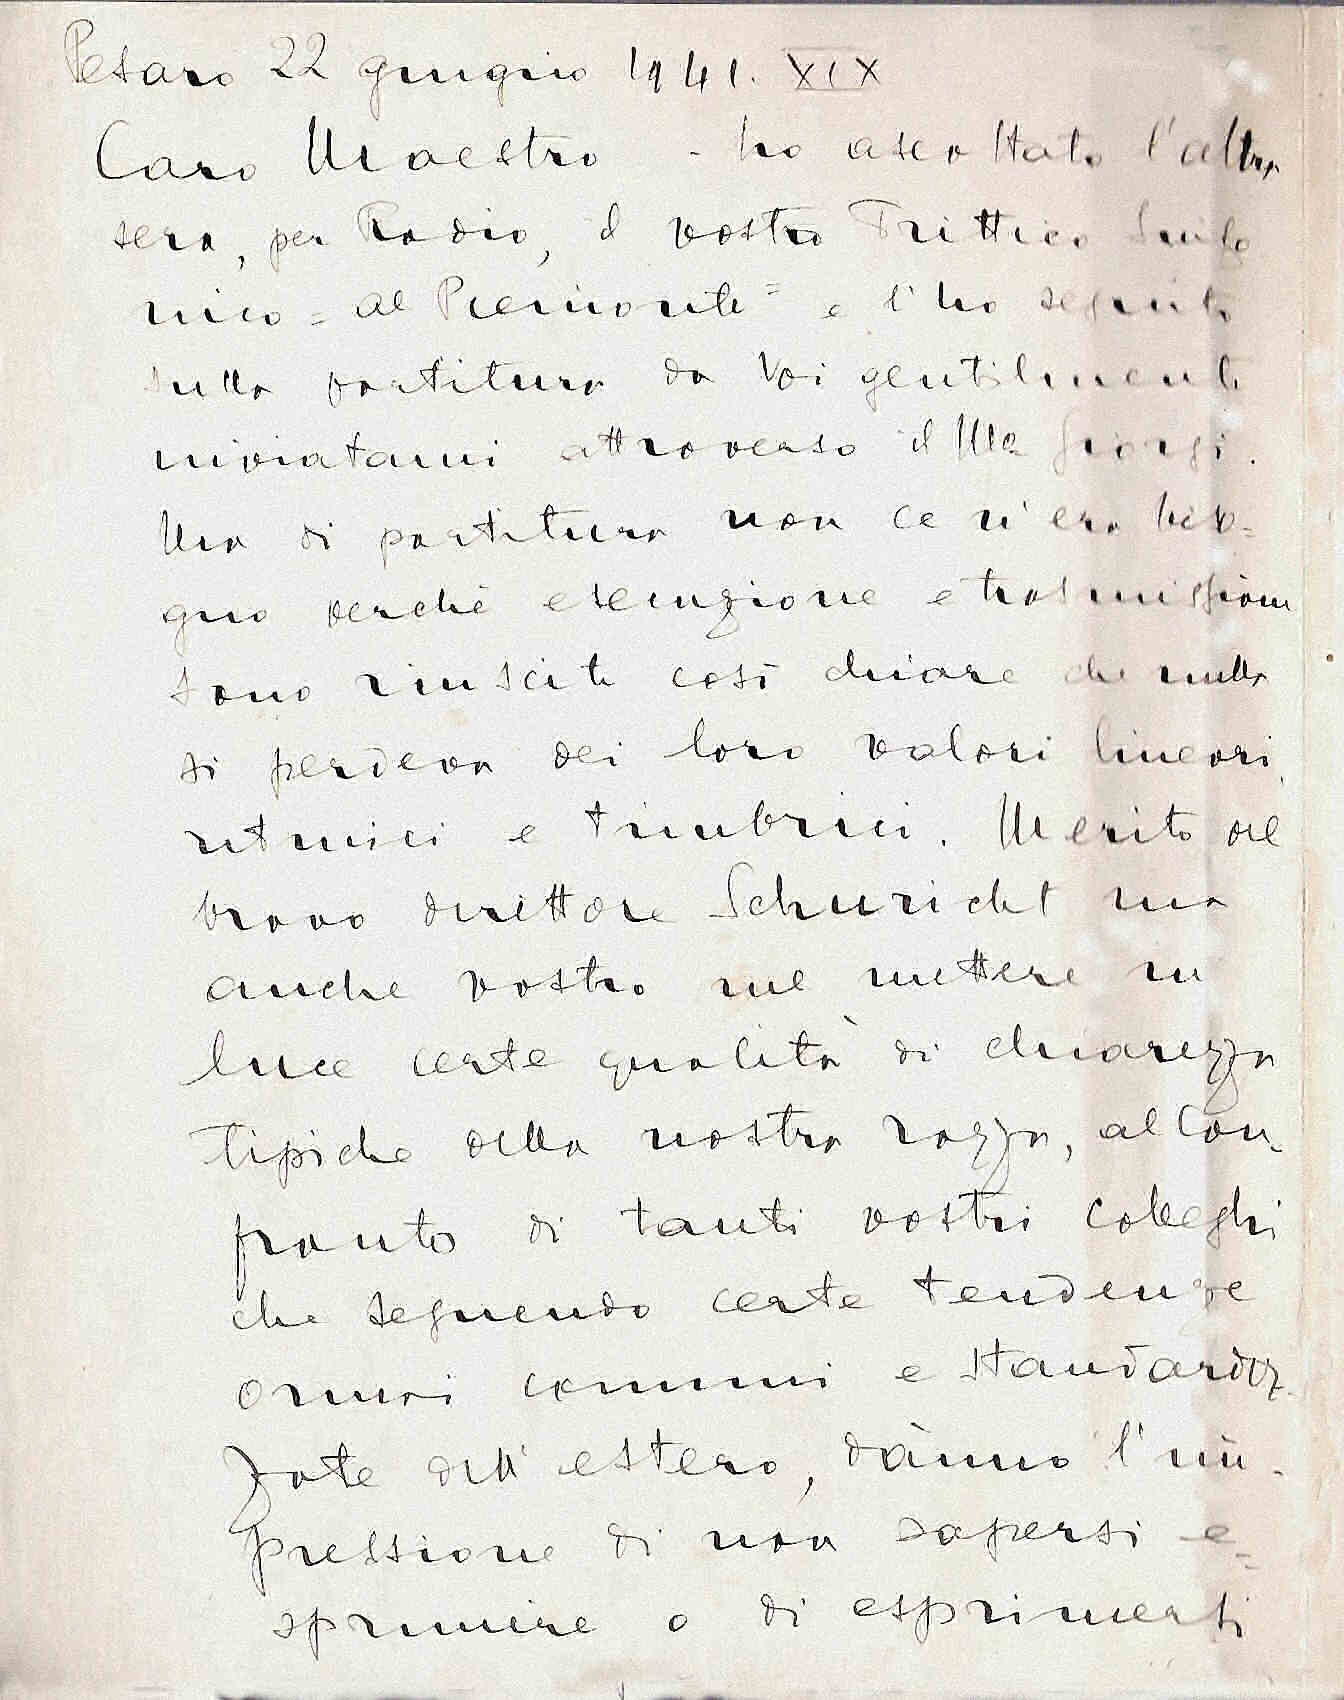 Pesaro 22 giugno 1941. XIX
Caro Maestro - ho ascoltato l'altra
sera, per Radio, il vostro Trittico Sinfo
nico = al Piemonte = e l'ho seguito
sulla partitura da Voi gentilmente
inviatami attraverso il Mo Giorgi.
Ma di partitura non ce n'era biso-
gno perché esecuzione e trasmissione
sono riuscite così chiare che nulla
si perdeva dei loro valori lineari,
ritmici e timbrici. Merito del
bravo direttore Schuricht ma
anche vostro nel mettere in
luce certe qualità di chiarezza
tipiche della nostra razza, al con-
fronto di tanti vostri colleghi
che seguendo certe tendenze
ormai comuni e standardiz-
zate dell'estero, dànno l'im-
pressione di non sapersi e-
sprimere o di esprimersi